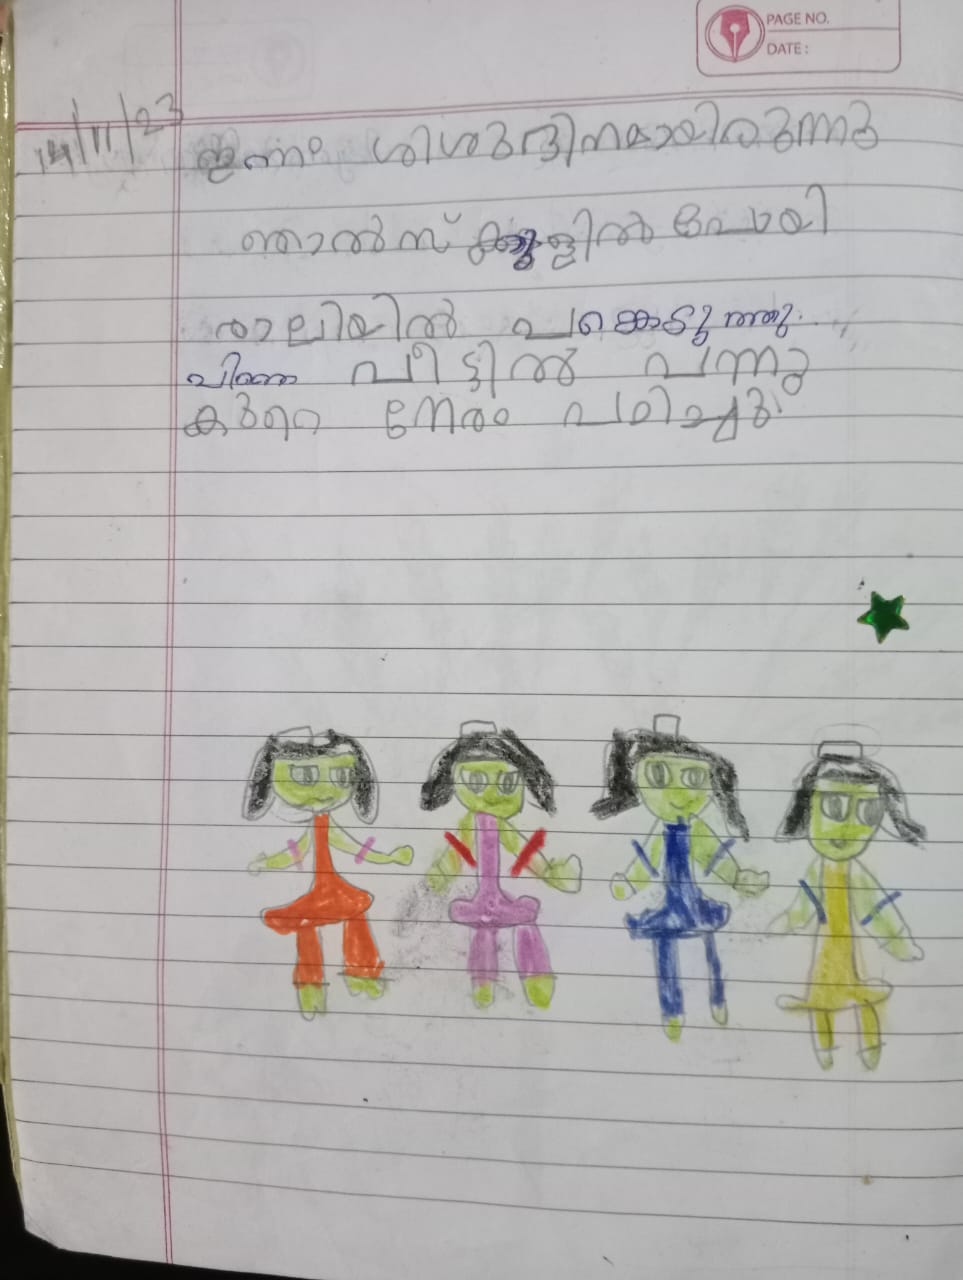 PAGE NO.
DATE:
14/11/23
ഇന്നം ശിശുദിനമായിരുന്നു
ഞാൽസ്കൂളിൽ പോയി
രാലിയിൽ പങ്കെടുത്തു.
പിന്നെ വീട്ടിൽ വന്നു
കുറെ നേരം പഠിച്ചു.